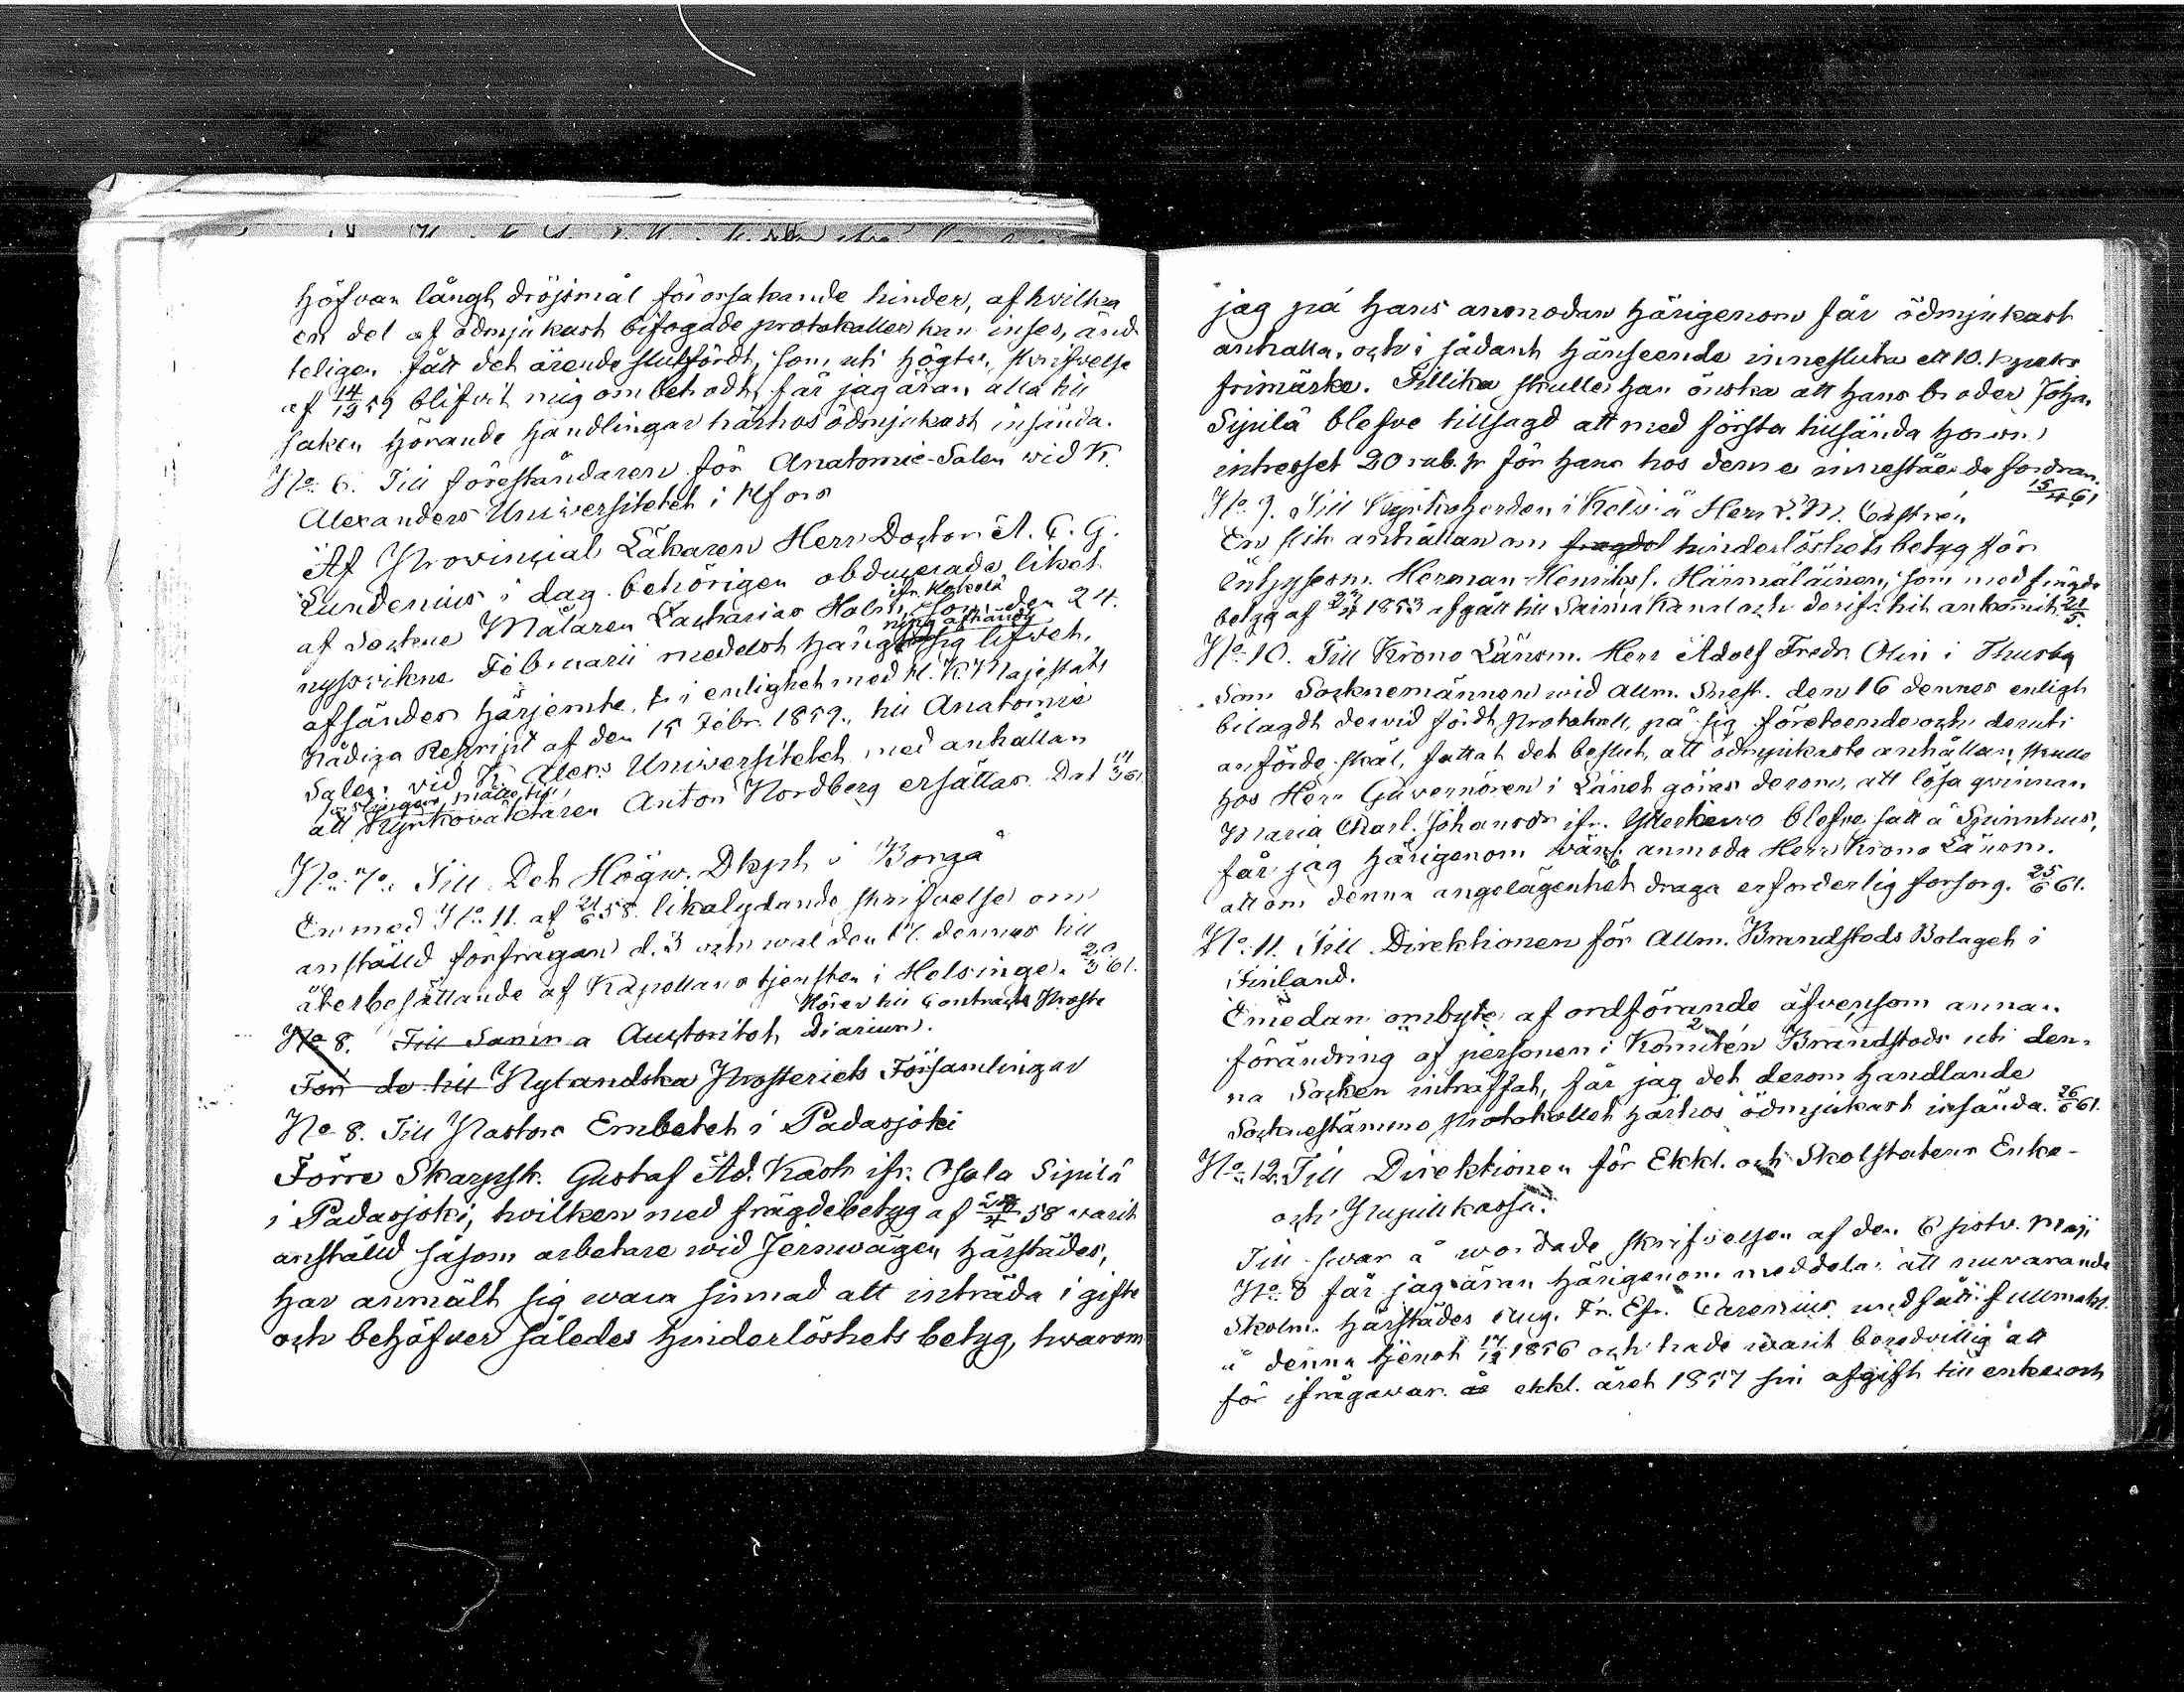 höfvan långt dröjsmål förorsakande hinder, af hvilka
en del af ödmjukast bifogade protokoller kan inses, änd
teligen fått det ärende slutfördt, som uti högtu, skrifvelse
af 14/12 59 blifvit mig ombetrodt, får jag äran alla till
saken hörande handlingar härhos ödmjukast insända.
No. 6. Till föreståndaren för Anatomie-Salen wid K.
Alexanders Universitetet i Hfors
Af Provincial Läkaren Herr Doctor A. F. G.
Lundenius i dag behörigen obducerade liket
ifr. Kokela
af Sockne Målaren Zacharias Holm, som den 24.
ning afhändt
nyssvikne Februarii medelst häng sig lifvet,
afsändes härjemte, i enlighet med H. K. Majestäts
Nådiga Reskript af den 15 Febr. 1859., till Anatomie
Salen wid K. Alex. Universitetet med anhållan
att Kyrkovaktaren Anton Nordberg ersättas. Dat 14/3 61.
No. 7. Till Det Högw. Dkpt i Borgå
En med No. 11. af 21/6 58. likalydande skrifvelse om
anställd förfrågan d. 3 och wal den 17. dennes till
återbesättande af Kapellans tjensten i Helsinge. 20/3 61.
Hörer till Contracts Prosts
No 8. Till Samma Auctoritet Diarium.
För de till Nylandska Prosteriets Församlingar
No 8. Till Pastors Embetet i Padasjoki
Förre Skarpsk. Gustaf Ad. Kask ifr. Osola Sipilä
i Padasjoki, hvilken med frägdebetyg af 58 warit
anställd såsom arbetare wid Jernwägen härstädes,
har anmält sig wara sinnad att inträda i gifte
och behöfver således hinderlöshets betyg, hwarom
jag på hans anmodan härigenom får ödmjukast
anhålla, och i sådant hänseende innesluta ett 10. kopeks
frimärke. Tillika skulle han önska att hans broder Johan
Sipilä blefve tillsagd att med första tillsända honom
intresset 20 rub. sr för hans hos denne innestående fordran.
15/4 61
No. 9. Till Kyrkoherden i Kelviå Herr L. M. Castrén
En slik anhållan om fragdet hinderlöshets betyg för
Herman Henrikss. Härmäläinen, som med frägde
betyg af 1853 afgått till Saima Kanal och derifr. hit ankommit. 21/5.
No. 10. Till Krono Länsm. Herr Adolf Fredr. Olin i Thusby
Som Socknemännen wid allm. Snest. den 16 dennes enligt
bilagdt dervid fördt Protokoll, på sig företeende och deruti
anförde skäl, fattat det beslut, att ödmjukaste anhållan skulle
hos Herr Guvernören i Länet göras derom, att lösa qvinnan
Maria Charl. Johansdr ifr. Ylleskerro blefve satt å Spinnhus,
får jag härigenom wänl. anmoda Herr Krono Länsm.
att om denna angelägenhet draga erforderlig försorg. 25/6 61.
No. 11. Till Direktionen för Allm. Brandstods Bolaget i
Finland.
Emedan ombyte af ordförande äfvensom annan
förändring af personen i Komitén Brandstods uti den-
na Socken inträffat, får jag det derom handlande
Sockenstämmo Protokollet härhos ödmjukast insända. 26/6 61.
No. 12. Till Direktionen för Ekkl. och Skolstatens Enke-
och Pupillkassa.
Till svar å wordade skrifvelsen af den 6 sistv. Maji
No. 8 får jag äran härigenom meddela: att nuvarande
Skolm. härstädes Aug. Fr. Efr. Carenius undfått fullmakt
å denna tjenst 17/12 1856 och hade warit beredvillig att
för ifrågavar. ekkl. året 1857 sin afgift till enke och